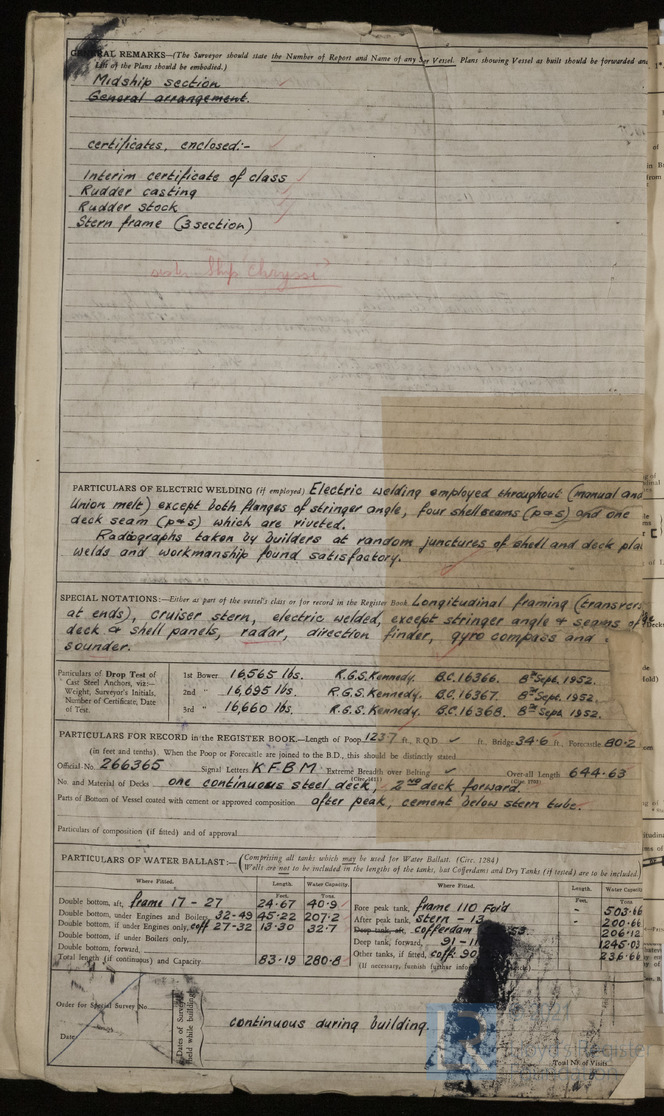 GENERAL REMARKS—(The Surveyor should state the Number of Report and Name of any Vessel. Plans showing Vessel as built should be forwarded and
List of the Plans should be embodied.)
Midship section
General arrangement.
certificates, enclosed:-
Interim certificate of class
Rudder casting
Rudder stock
Stern frame (3 section)
Ship "Chryssi"
PARTICULARS OF ELECTRIC WELDING (if employed) Electric welding employed throughout (manual and
Union melt) except both flanges of stringer angle, four shell seams (p&s) and one
deck seam (p&s) which are riveted.
Radiographs taken by builders at random junctures of shell and deck pla
welds and workmanship found satisfactory.
SPECIAL NOTATIONS:—Either as part of the vessel's class or for record in the Register Book. Longitudinal framing (transvers
at ends), cruiser stern, electric welded, except stringer angle & seams of
deck & shell panels, radar, direction finder, gyro compass and
sounder.
Particulars of Drop Test of Cast Steel Anchors, viz:— Weight, Surveyor's Initials, Number of Certificate, Date of Test.
1st Bower 16,565 lbs. R.G.S. Kennedy. B.C. 16366. 8th Sept. 1952.
2nd " 16,695 lbs. R.G.S. Kennedy. B.C. 16367. 8th Sept. 1952.
3rd " 16,660 lbs. R.G.S. Kennedy. B.C. 16368. 8th Sept. 1952.
PARTICULARS FOR RECORD in the REGISTER BOOK.—Length of Poop 123.7 ft., R.Q.D. ✓ ft., Bridge 34.6 ft., Forecastle 80.2
(in feet and tenths). When the Poop or Forecastle are joined to the B.D., this should be distinctly stated
Official No. 266365 Signal Letters KFBM Extreme Breadth over Belting ✓ Over-all Length 644.63
No. and Material of Decks one continuous steel deck, 2nd deck forward.
Parts of Bottom of Vessel coated with cement or approved composition after peak, cement below stern tube.
Particulars of composition (if fitted) and of approval
PARTICULARS OF WATER BALLAST:—(Comprising all tanks which may be used for Water Ballast. (Circ. 1284)
Wells are not to be included in the lengths of the tanks, but Cofferdams and Dry Tanks (if tested) are to be included.)
Where Fitted. Length. Water Capacity. Where Fitted. Length. Water Capacity
Feet. Tons. Feet.
Double bottom, aft, frame 17 - 27 24.67 40.9 Fore peak tank, frame 110 For'd - 503.66
Double bottom, under Engines and Boilers, 32-49 45.22 207.2 After peak tank, stern - 13 - 200.66
Double bottom, if under Engines only, coff 27-32 13.30 32.7 Deep tank, aft, cofferdam 53 206.12
Double bottom, if under Boilers only, Deep tank, forward, 91 - 11 1245.03
Double bottom, forward, Other tanks, if fitted, coff. 90 236.66
Total length (if continuous) and Capacity 83.19 280.8 (If necessary, furnish further
Order for Special Survey No.
Date
Dates of Surveys held while building
continuous during building.
Total No. of Visits
Lloyd's Register